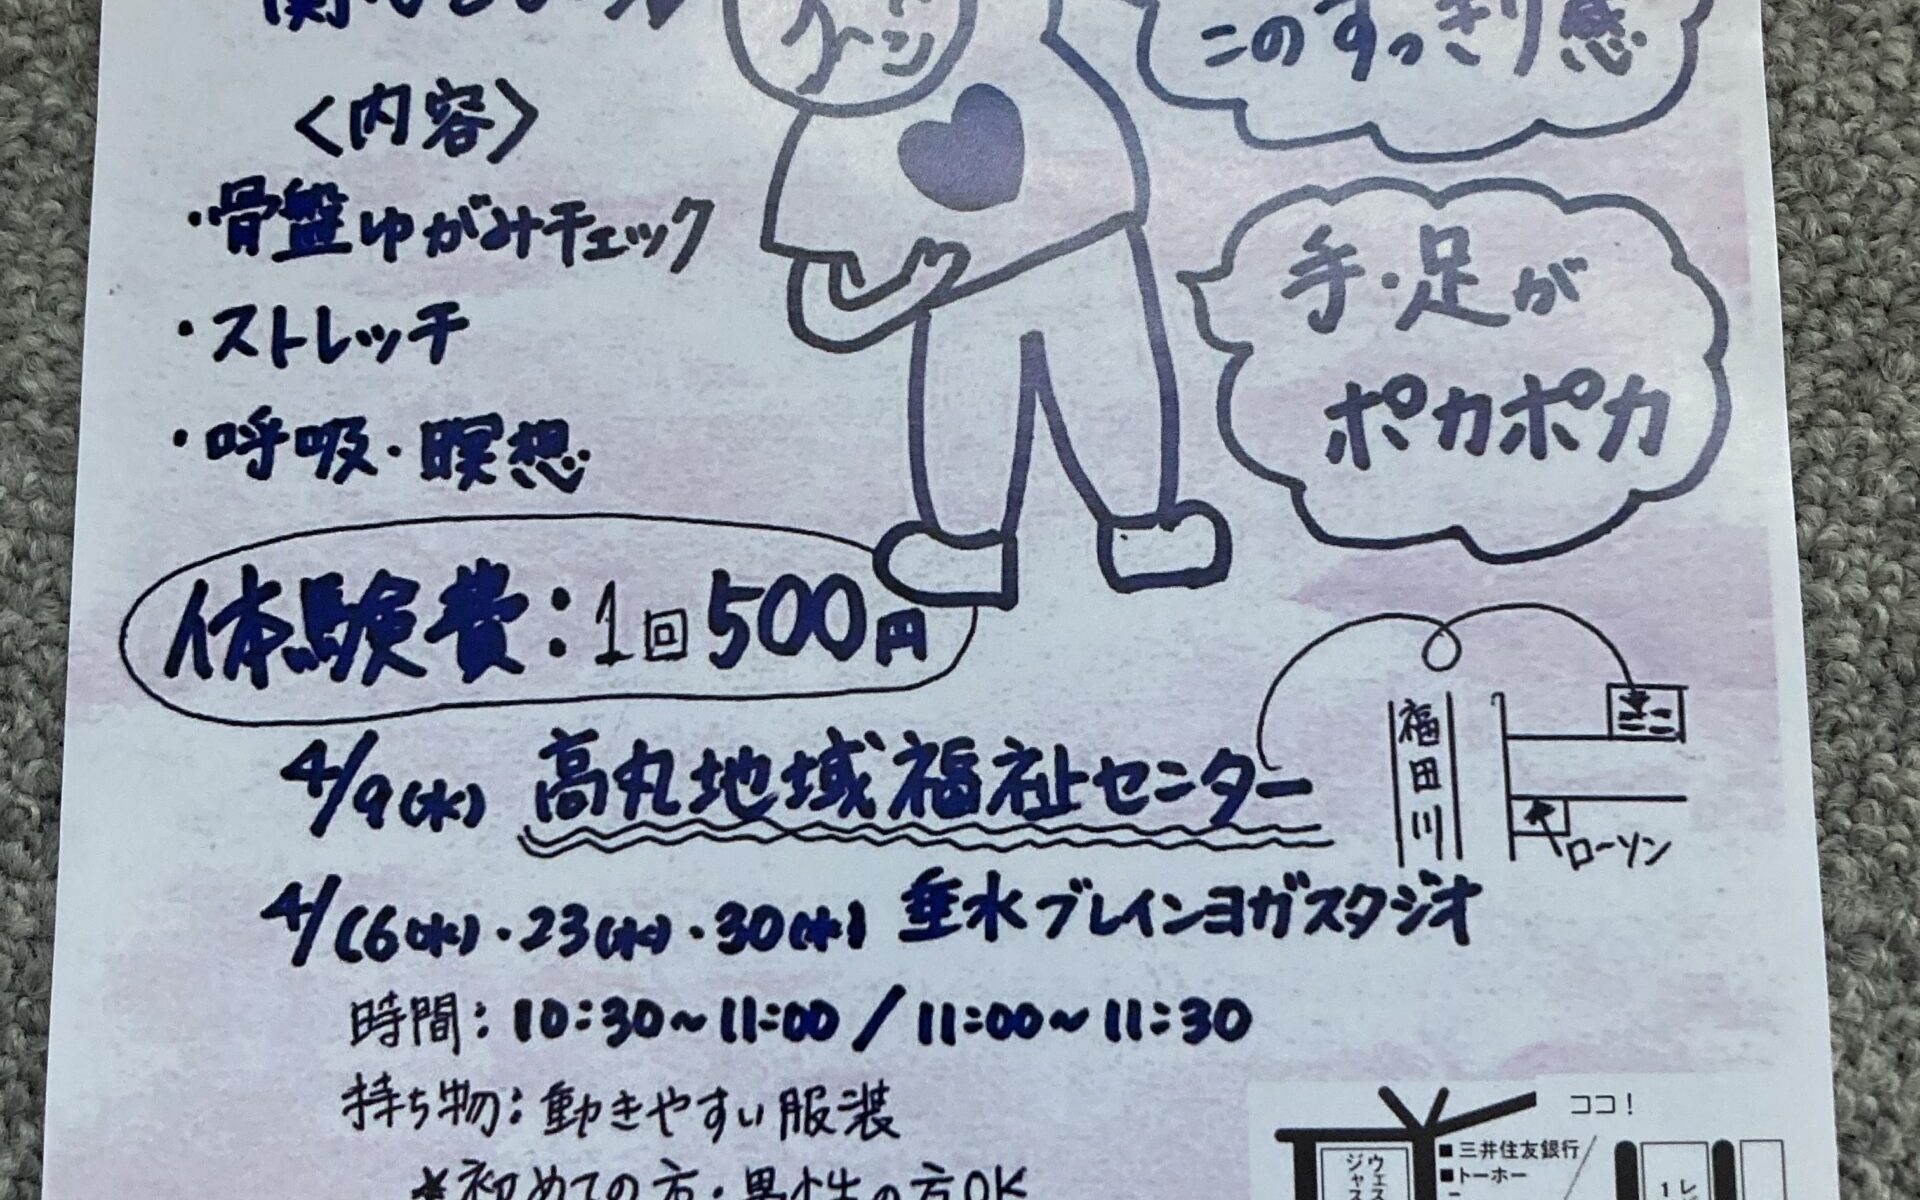 このすっきり感
<内容>
・骨盤ゆがみチェック
・ストレッチ
・呼吸・瞑想
手・足が
ポカポカ
体験費：1回500円
4/9(水) 高丸地域福祉センター
福田川
ローソン
4/16(水)・23(水)・30(水) 垂水ブレインヨガスタジオ
時間：10:30～11:00 / 11:00～11:30
持ち物：動きやすい服装
*初めての方・男性の方OK
ココ！
■三井住友銀行
■トーホー